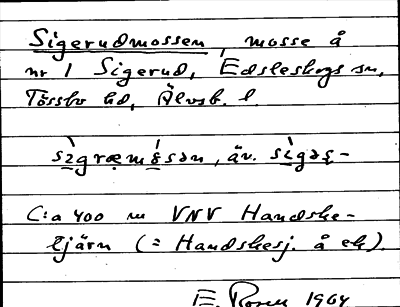 Sigerudmossen, mosse å
nr 1 Sigerud, Edsleskogs sn,
Tössbo hd, Älvsb. l.
sìgræmósən, äv. sìgəʂ-
C:a 400 m VNV Handske-
tjärn (= Handskesj. å ek).
E. Rosen 1964